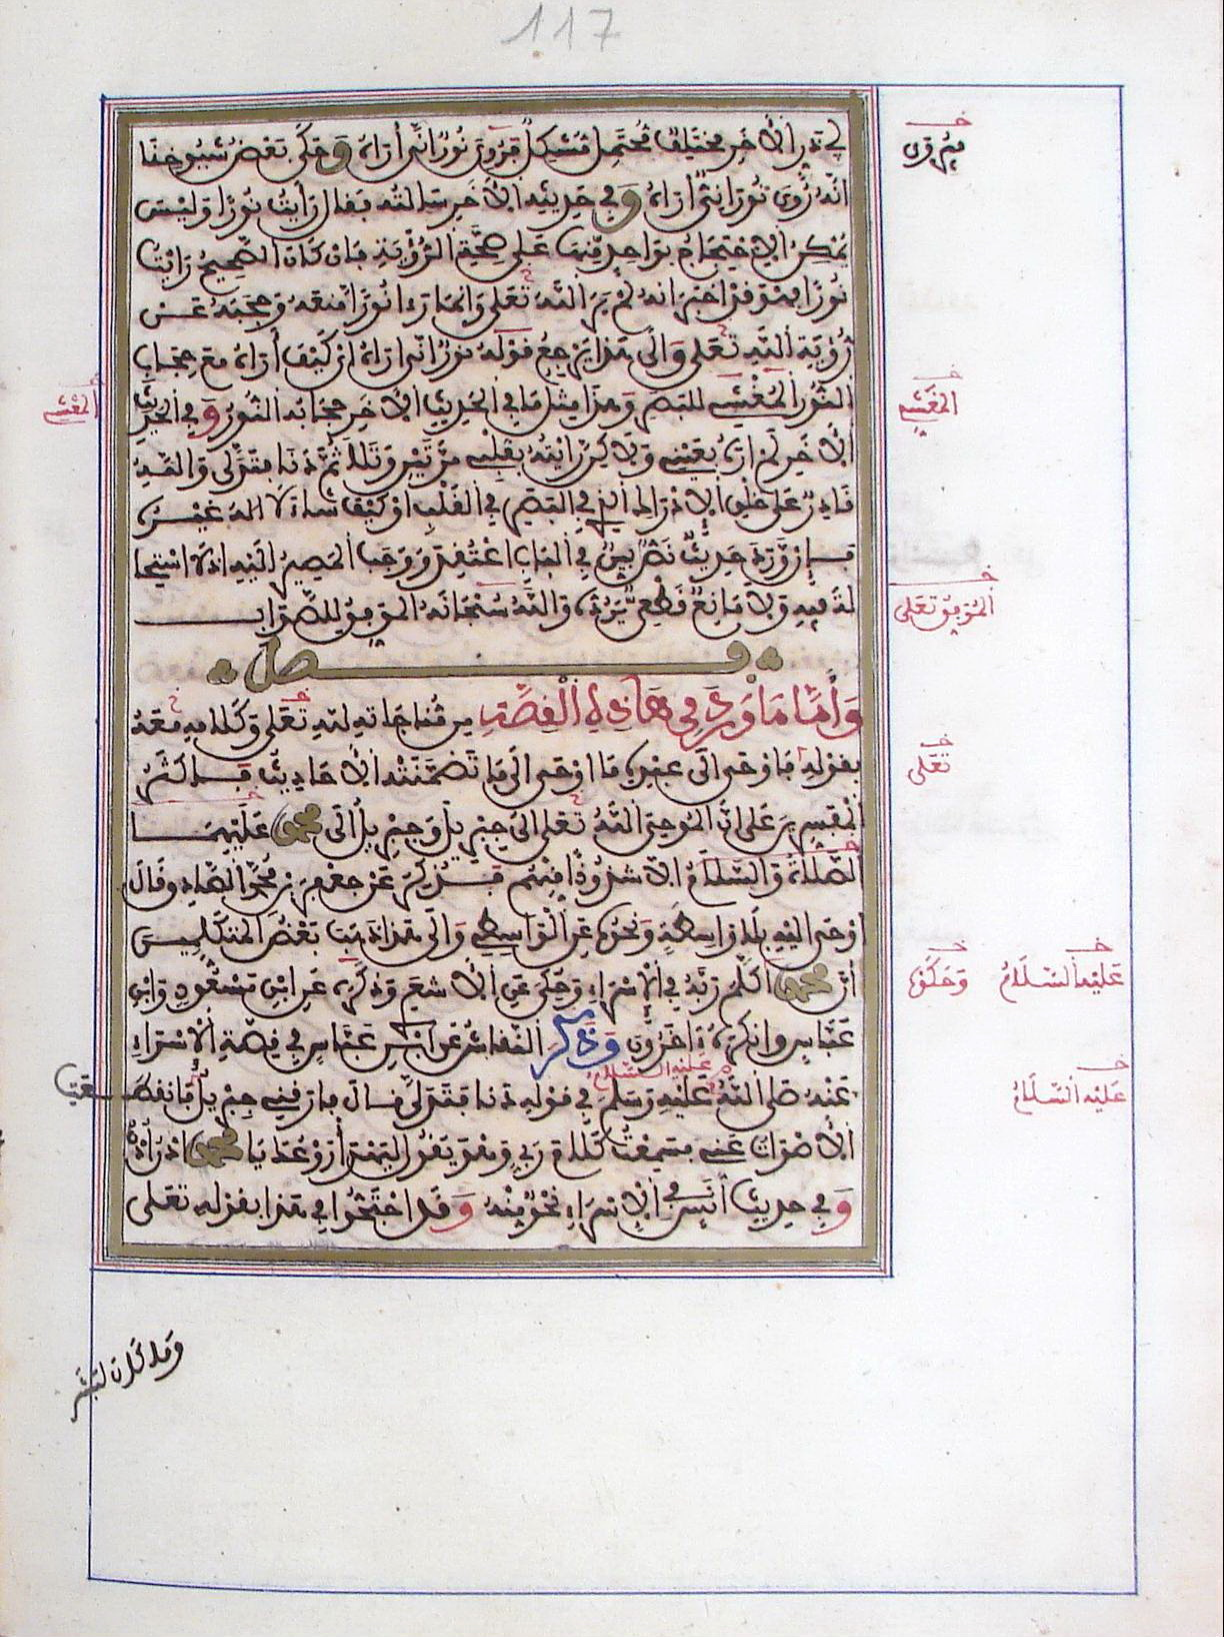 117
لحديث أبي ذر الآخر مختلف محتمل مشكل فروي نور أنى أراه وحكى بعض شيوخنا
أنه روي نوراني أراه وفي حديثه الآخر سألته فقال رأيت نورا وليس
يمكن الاحتجاج بواحد منها على صحة الرؤية فإن كان الصحيح رأيت
نورا فهو قد أخبر أنه لم ير الله تعلى وإنما رءا نورا منعه وحجبه عن
رؤية الله تعلى وإلى هذا يرجع قوله نور أنى أراه أي كيف أراه مع حجاب
النور المغشي للبصر وهذا مثل ما في الحديث الآخر حجابه النور وفي الحديث
الآخر لم أره بعيني ولاكن رأيته بقلبي مرتين وتلا ثم دنا فتدلى والله
قادر على خلق الإدراك الذي في البصر في القلب أو كيف شاء لا إله غيره
فإن ورد حديث نص بين في الباب اعتقد ووجب المصير إليه إذ لا استحا
لة فيه ولا مانع قطعي يرده والله سبحانه الموفق للصواب
فصل
وأما ما ورد في هاذه القصة من مناجاته لله تعلى وكلامه معه
بقوله فأوحى إلى عبده ما أوحى إلى ما تضمنته الأحاديث فأكثر
المفسرين على أن الموحي الله تعلى إلى جبريل وجبريل إلى محمد عليهما
الصلاة والسلام إلا شذوذا منهم فذكر عن جعفر بن محمد الصادق قال
أوحى إليه بلا واسطة ونحوه عن الواسطي وإلى هذا ذهب بعض المتكلمين
أن محمدا كلم ربه في الإسراء وحكي عن الأشعري وذكره عن ابن مسعود وابن
عباس وأنكره ءاخرون وذكر النقاش عن ابن عباس في قصة الإسراء
عليه السلام
عنه صلى الله عليه وسلم في قوله دنا فتدلى قال فارقني جبريل فانقطعت
الأصوات عني فسمعت كلام ربي وهو يقول ليهدأ روعك يا محمد ادن ادن
وفي حديث أنس في الإسراء نحو منه وقد احتجوا في هذا بقوله تعلى
وما كان لبشر
خ
فروي
خ
المغشي
خ
المغشي
خ
الموفق تعلى
خ
تعلى
خ
عليه السلام
خ
وحكوا
خ
عليه السلام